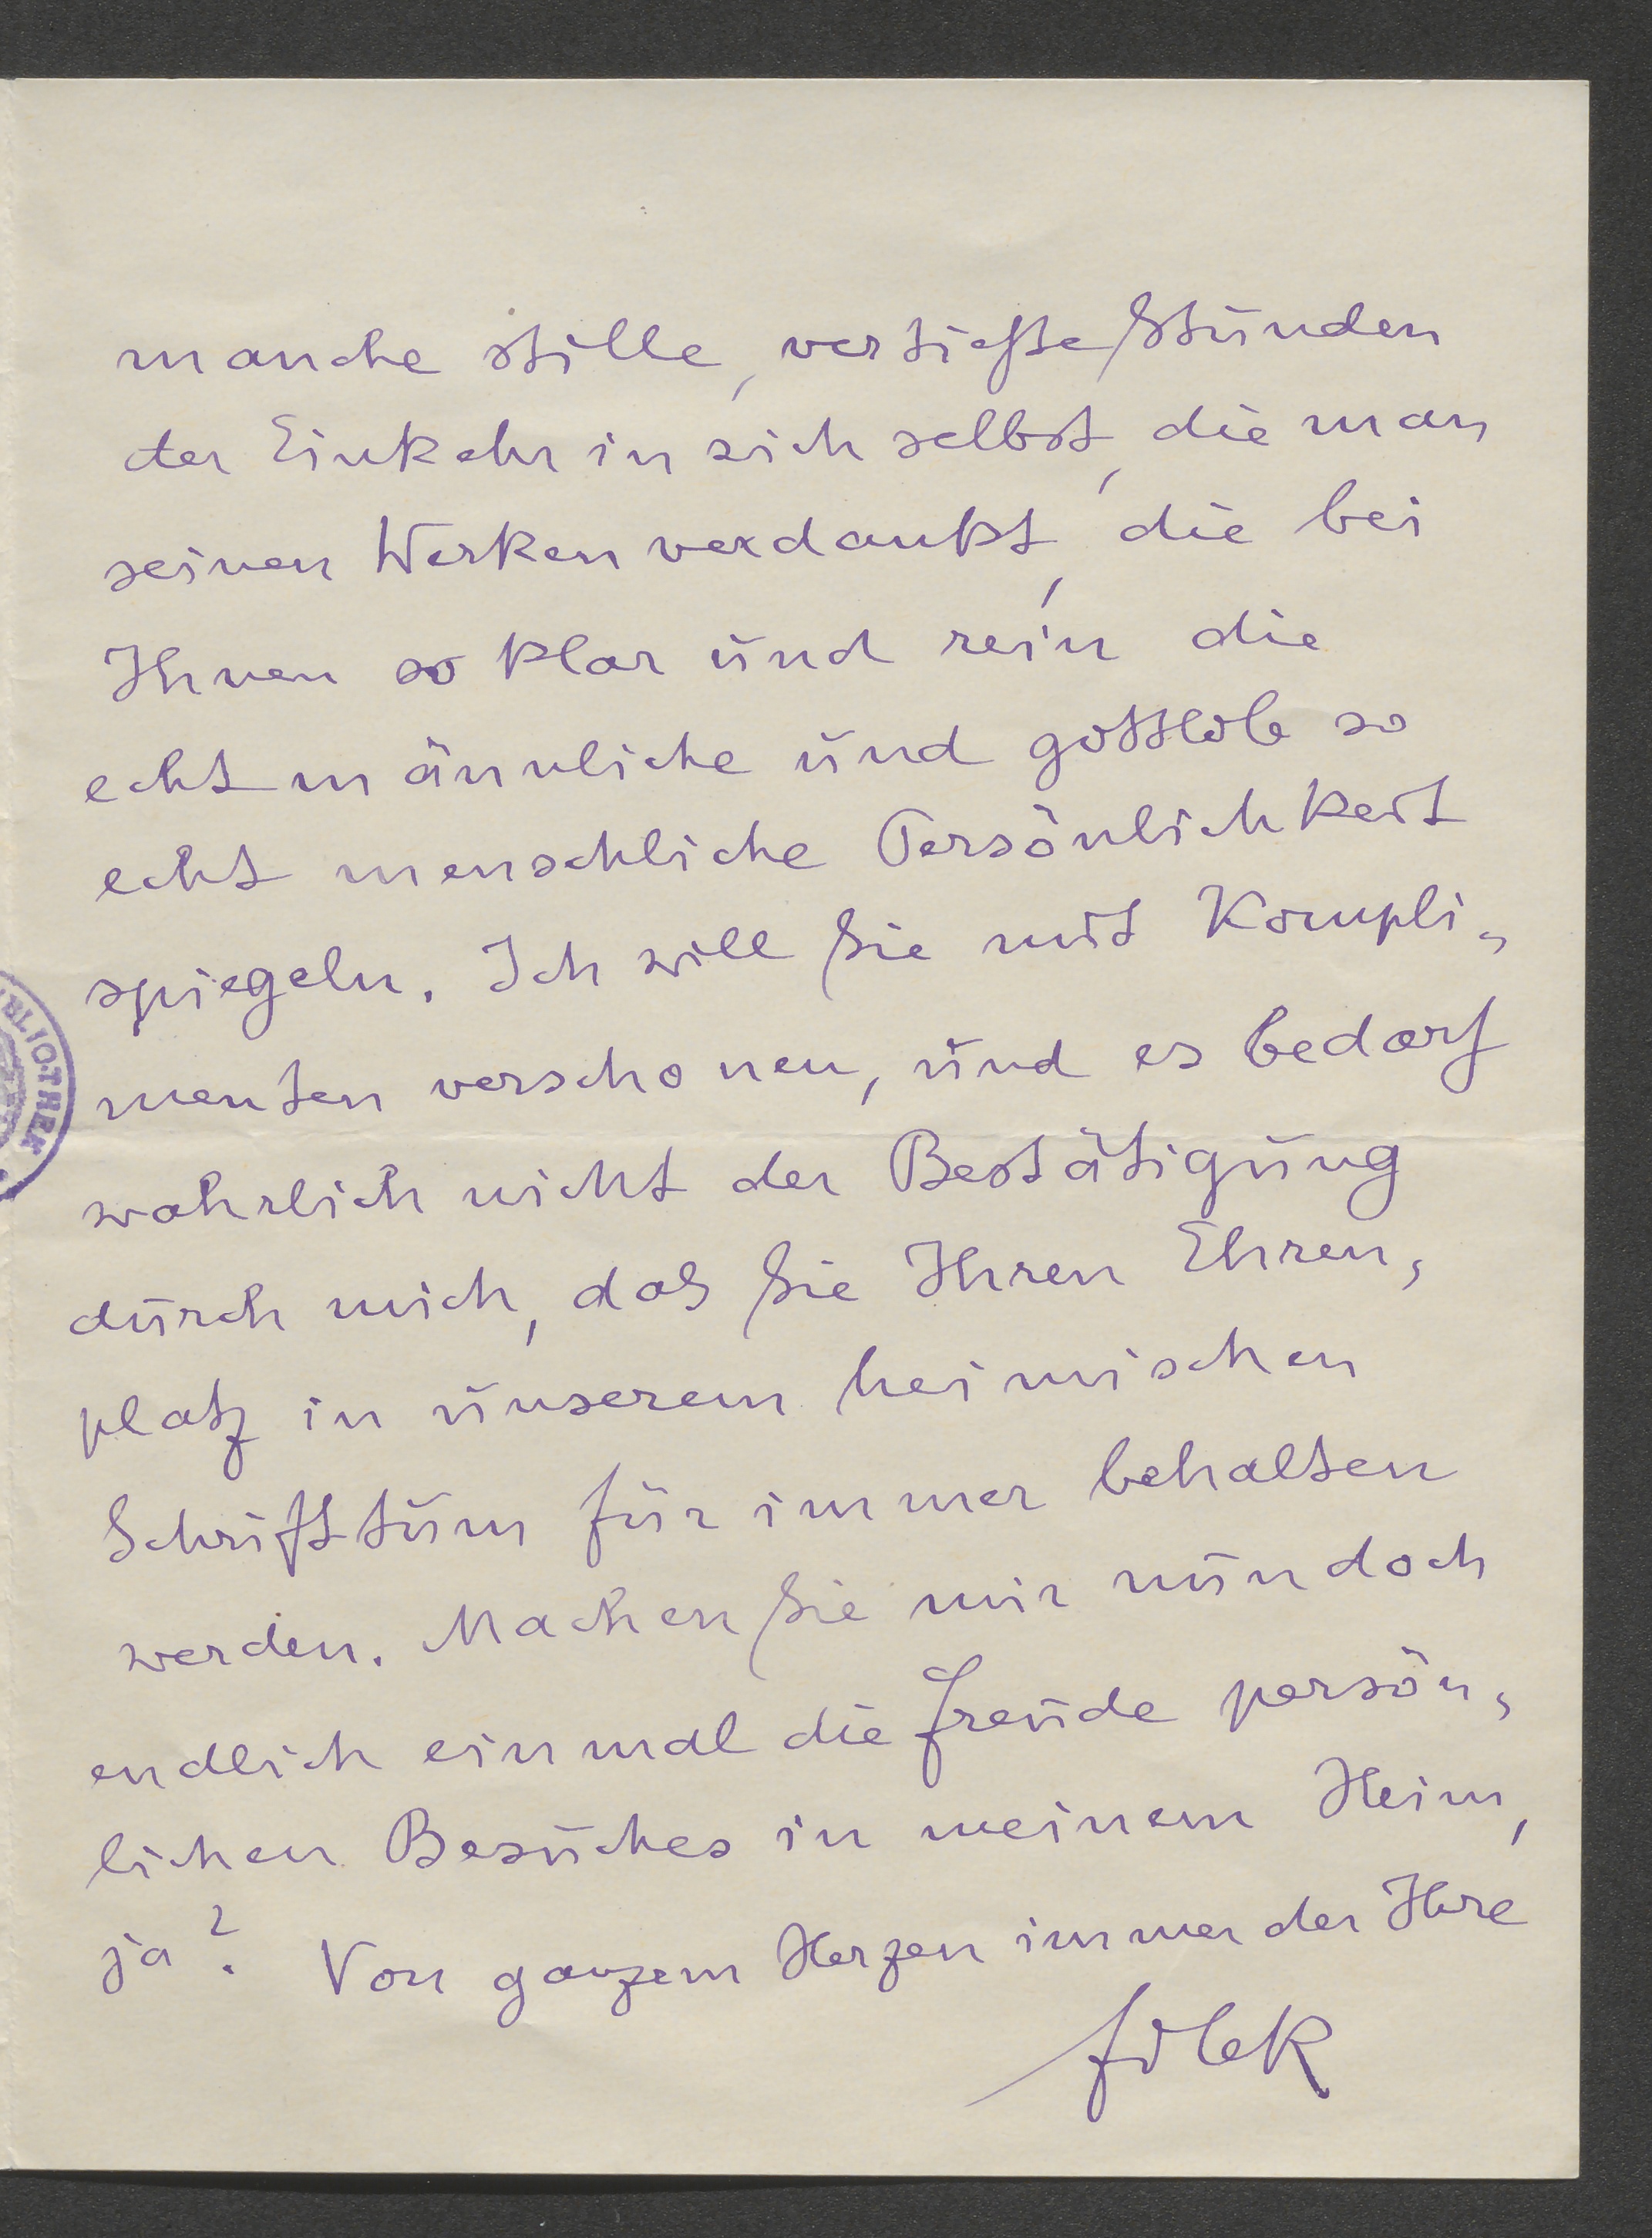 manche stille, vertiefte Stunden
der Einkehr in sich selbst, die man
seinen Werken verdankt, die bei
Ihnen so klar und rein die
echt männliche und gottlob so
echt menschliche Persönlichkeit
spiegeln. Ich will Sie mit Kompli-
menten verschonen, und es bedarf
wahrlich nicht der Bestätigung
durch mich, daß Sie Ihren Ehren-
platz in unserem heimischen
Schrifttum für immer behalten
werden. Machen Sie mir nun doch
endlich einmal die Freude persön-
lichen Besuches in meinem Heim,
ja? Von ganzem Herzen immer der Ihre